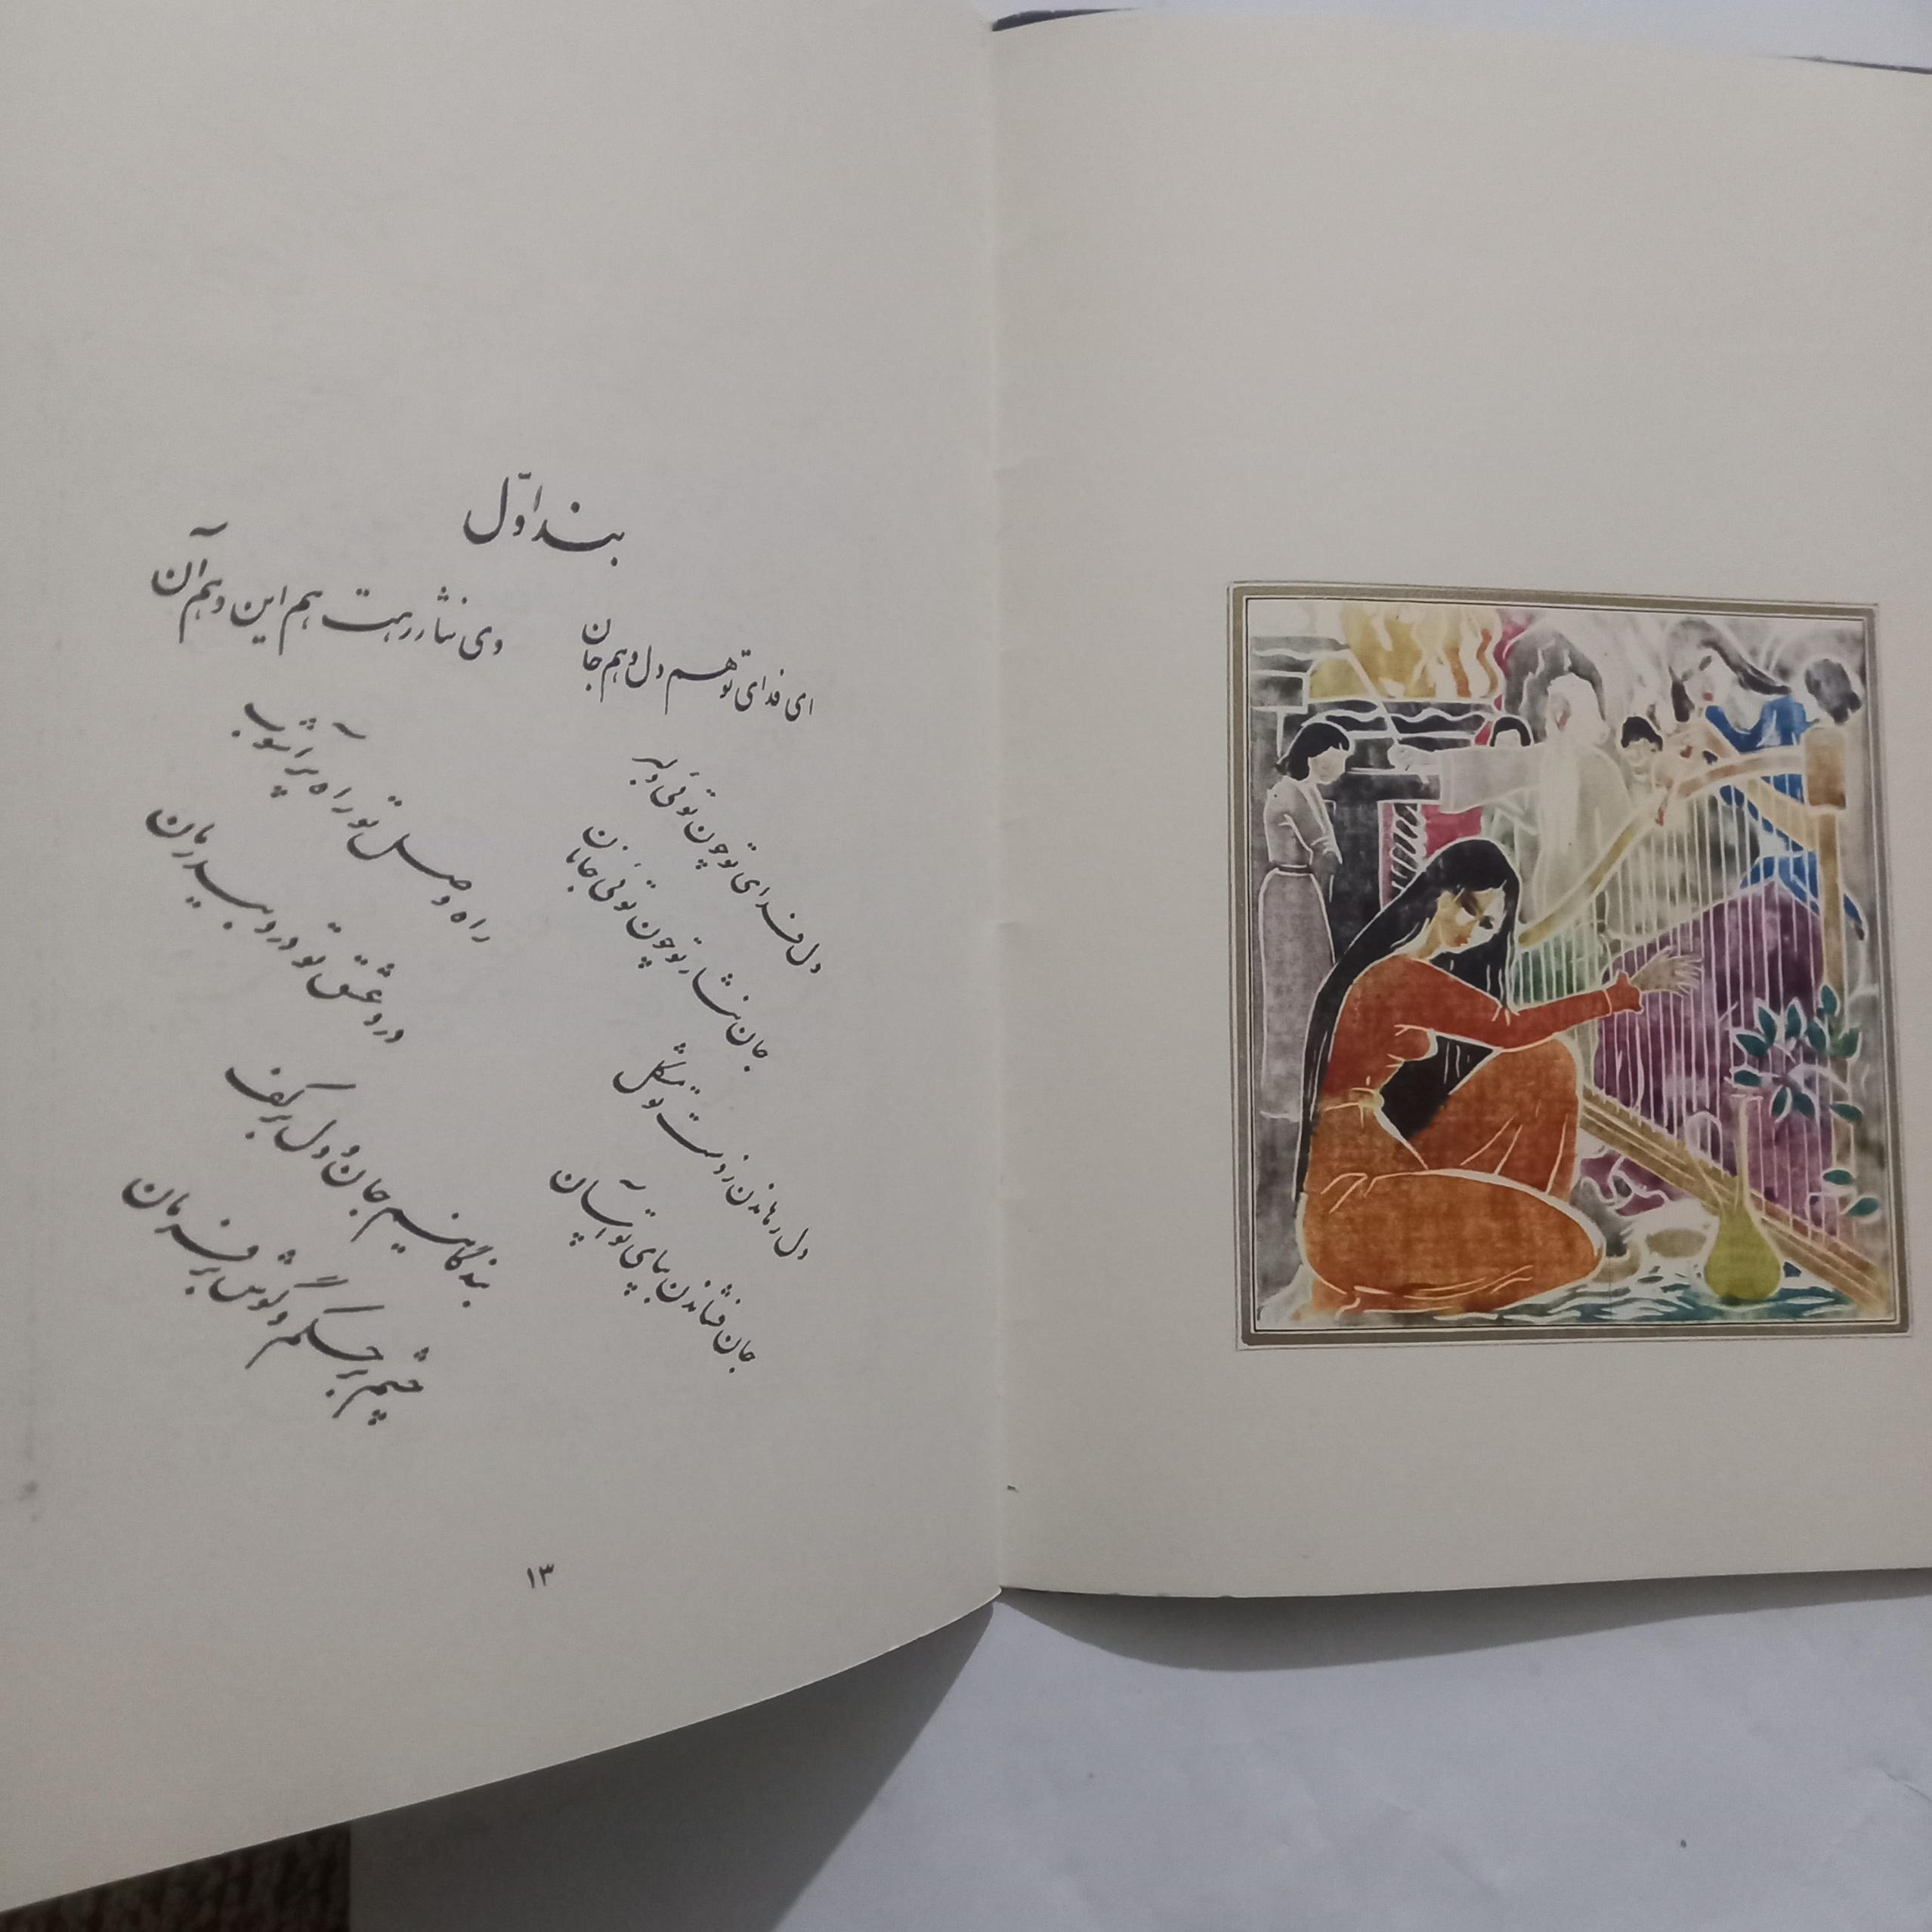 بند اوّل
ای فدای تو هم دل و هم جان
وی نثار رهت هم این و هم آن
دل فدای تو چون تویی دلبر
جان نثار تو چون تویی جانان
راه وصل تو راه پر آشوب
درد عشق تو درد بیدرمان
دل رهاندن ز دست تو مشکل
جان فشاندن بپای تو آسان
بندگانیم جان و دل بر کف
چشم بر حکم و گوش بر فرمان
۱۳